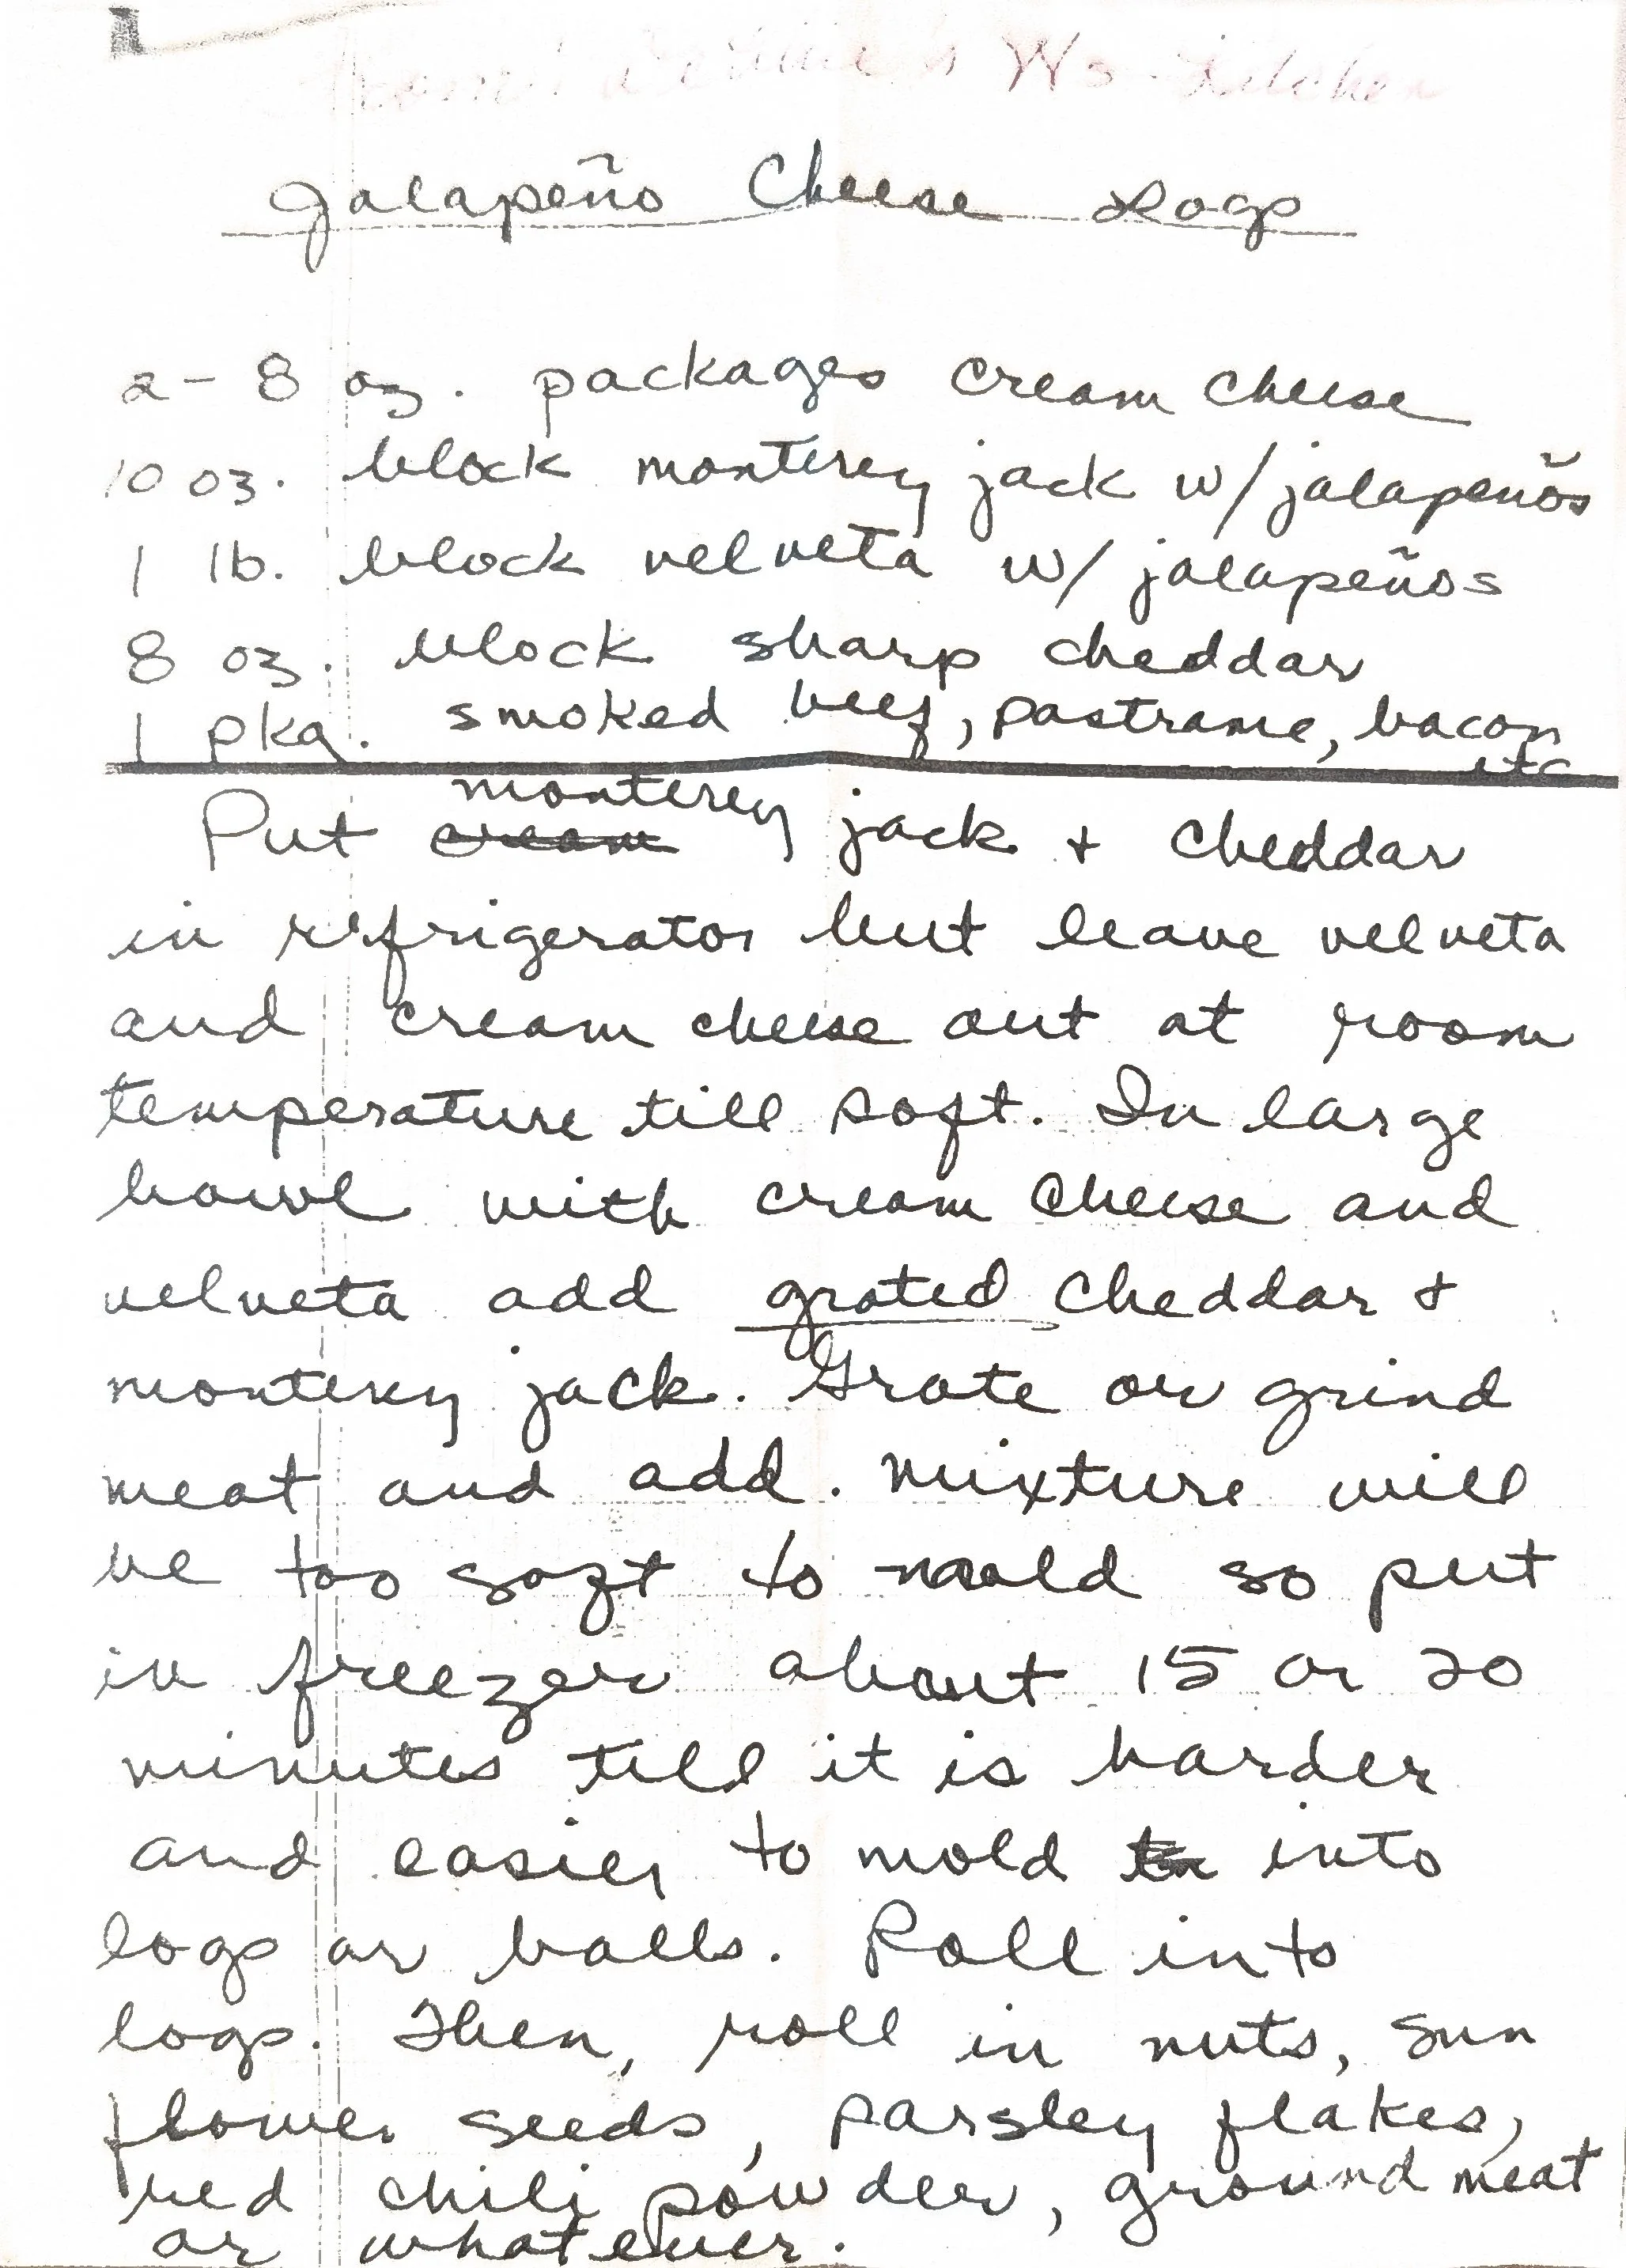 Ws Kitchen
Jalapeño Cheese Logs
2 - 8 oz. packages cream cheese
10 oz. block monterey jack w/ jalapeños
1 lb. block velveta w/ jalapeños
8 oz. block sharp cheddar
1 pkg. smoked beef, pastrame, bacon
etc
Put monterey jack + cheddar
in refrigerator but leave velveta
and cream cheese out at room
temperature till soft. In large
bowl with cream cheese and
velveta add grated cheddar +
monterey jack. Grate or grind
meat and add. mixture will
be too soft to mold so put
in freezer about 15 or 20
minutes till it is harder
and easier to mold into
logs or balls. Roll into
logs. Then, roll in nuts, sun
flower seeds, parsley flakes,
red chili powder, ground meat
or whatever.